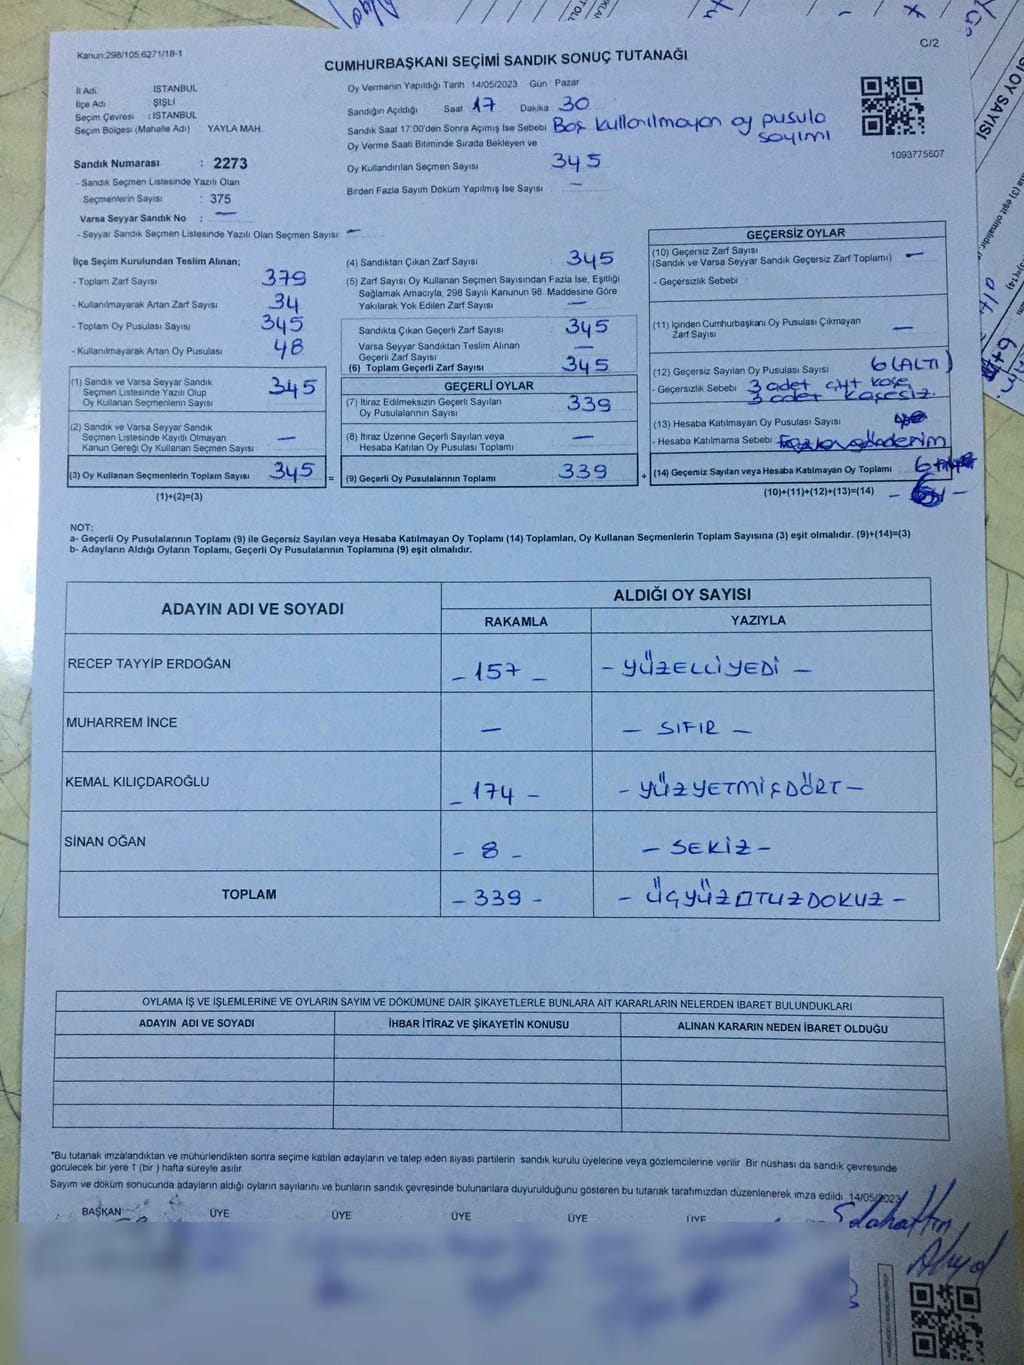 Kanun:298/105;6271/18-1
C/2
CUMHURBAŞKANI SEÇİMİ SANDIK SONUÇ TUTANAĞI
İl Adı İSTANBUL
İlçe Adı ŞİŞLİ
Seçim Çevresi : İSTANBUL
Seçim Bölgesi (Mahalle Adı) YAYLA MAH.
Sandık Numarası : 2273
- Sandık Seçmen Listesinde Yazılı Olan
Seçmenlerin Sayısı : 375
Varsa Seyyar Sandık No : —
- Seyyar Sandık Seçmen Listesinde Yazılı Olan Seçmen Sayısı: —
Oy Vermenin Yapıldığı Tarih 14/05/2023 Gün : Pazar
Sandığın Açıldığı Saat 17 Dakika 30
Sandık Saat 17:00'den Sonra Açımış İse Sebebi Boş kullanılmayan oy pusula
sayımı
Oy Verme Saati Bitiminde Sırada Bekleyen ve
Oy Kullandırılan Seçmen Sayısı 345
Birden Fazla Sayım Döküm Yapılmış İse Sayısı —
1093775507
İlçe Seçim Kurulundan Teslim Alınan;
- Toplam Zarf Sayısı 379
- Kullanılmayarak Artan Zarf Sayısı 34
- Toplam Oy Pusulası Sayısı 345
- Kullanılmayarak Artan Oy Pusulası 48
(1) Sandık ve Varsa Seyyar Sandık
Seçmen Listesinde Yazılı Olup
Oy Kullanan Seçmenlerin Sayısı 345
(2) Sandık ve Varsa Seyyar Sandık
Seçmen Listesinde Kayıtlı Olmayan
Kanun Gereği Oy Kullanan Seçmen Sayısı —
(3) Oy Kullanan Seçmenlerin Toplam Sayısı 345 =
(1)+(2)=(3)
(4) Sandıktan Çıkan Zarf Sayısı 345
(5) Zarf Sayısı Oy Kullanan Seçmen Sayısından Fazla İse, Eşitliği
Sağlamak Amacıyla, 298 Sayılı Kanunun 98. Maddesine Göre
Yakılarak Yok Edilen Zarf Sayısı —
Sandıkta Çıkan Geçerli Zarf Sayısı 345
Varsa Seyyar Sandıktan Teslim Alınan
Geçerli Zarf Sayısı —
(6) Toplam Geçerli Zarf Sayısı 345
GEÇERLİ OYLAR
(7) İtiraz Edilmeksizin Geçerli Sayılan
Oy Pusulalarının Sayısı 339
(8) İtiraz Üzerine Geçerli Sayılan veya
Hesaba Katılan Oy Pusulası Toplamı —
(9) Geçerli Oy Pusulalarının Toplamı 339 +
GEÇERSİZ OYLAR
(10) Geçersiz Zarf Sayısı
(Sandık ve Varsa Seyyar Sandık Geçersiz Zarf Toplamı) —
- Geçersizlik Sebebi
(11) İçinden Cumhurbaşkanı Oy Pusulası Çıkmayan
Zarf Sayısı —
(12) Geçersiz Sayılan Oy Pusulası Sayısı 6 (ALTI)
- Geçersizlik Sebebi 3 adet çift kaşe
3 adet kaşesiz.
(13) Hesaba Katılmayan Oy Pusulası Sayısı
- Hesaba Katılmama Sebebi
(14) Geçersiz Sayılan veya Hesaba Katılmayan Oy Toplamı 6
(10)+(11)+(12)+(13)=(14)
NOT:
a- Geçerli Oy Pusulalarının Toplamı (9) ile Geçersiz Sayılan veya Hesaba Katılmayan Oy Toplamı (14) Toplamları, Oy Kullanan Seçmenlerin Toplam Sayısına (3) eşit olmalıdır. (9)+(14)=(3)
b- Adayların Aldığı Oyların Toplamı, Geçerli Oy Pusulalarının Toplamına (9) eşit olmalıdır.
ADAYIN ADI VE SOYADI ALDIĞI OY SAYISI
RAKAMLA YAZIYLA
RECEP TAYYİP ERDOĞAN - 157 - - YÜZELLİYEDİ -
MUHARREM İNCE — - SIFIR -
KEMAL KILIÇDAROĞLU - 174 - - YÜZYETMİŞDÖRT -
SİNAN OĞAN - 8 - - SEKİZ -
TOPLAM - 339 - - ÜÇYÜZOTUZDOKUZ -
OYLAMA İŞ VE İŞLEMLERİNE VE OYLARIN SAYIM VE DÖKÜMÜNE DAİR ŞİKAYETLERLE BUNLARA AİT KARARLARIN NELERDEN İBARET BULUNDUKLARI
ADAYIN ADI VE SOYADI İHBAR İTİRAZ VE ŞİKAYETİN KONUSU ALINAN KARARIN NEDEN İBARET OLDUĞU
*Bu tutanak imzalandıktan ve mühürlendikten sonra seçime katılan adayların ve talep eden siyasi partilerin sandık kurulu üyelerine veya gözlemcilerine verilir. Bir nüshası da sandık çevresinde
görülecek bir yere 1 (bir) hafta süreyle asılır.
Sayım ve döküm sonucunda adayların aldığı oyların sayılarını ve bunların sandık çevresinde bulunanlara duyurulduğunu gösteren bu tutanak tarafımızdan düzenlenerek imza edildi. 14/05/2023
BAŞKAN ÜYE ÜYE ÜYE ÜYE ÜYE